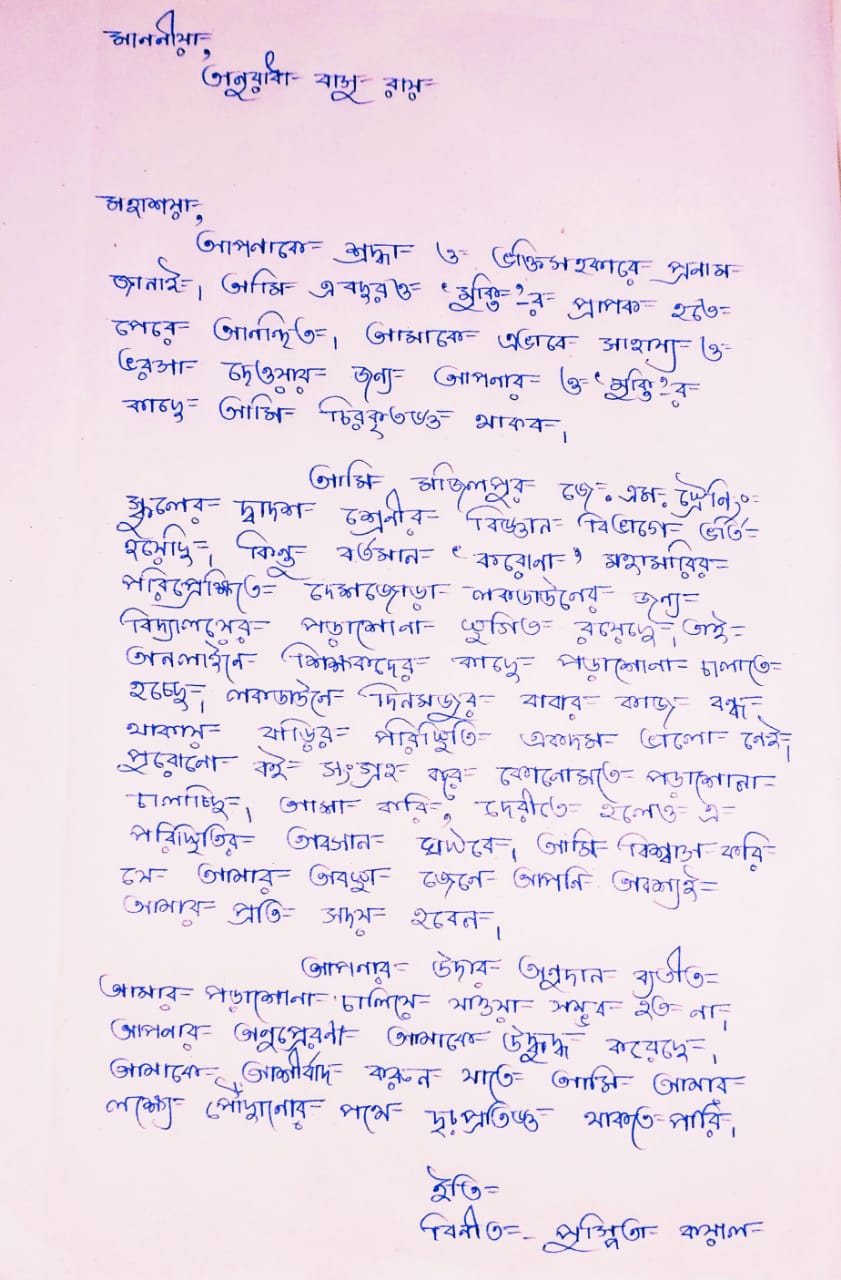 মাননীয়া,
অনুরাধা বাসু রায়
মহাশয়া,
আপনাকে শ্রদ্ধা ও ভক্তিসহকারে প্রনাম
জানাই। আমি এবছরও 'মুক্তি'-র প্রাপক হতে
পেরে আনন্দিত। আমাকে এভাবে সাহায্য ও
ভরসা দেওয়ার জন্য আপনার ও 'মুক্তি'র
কাছে আমি চিরকৃতজ্ঞ থাকব।
আমি মজিলপুর জে. এম. ট্রেনিং
স্কুলের দ্বাদশ শ্রেনীর বিজ্ঞান বিভাগে ভর্তি
হয়েছি। কিন্তু বর্তমান 'করোনা' মহামারির
পরিপ্রেক্ষিতে দেশজোড়া লকডাউনের জন্য
বিদ্যালয়ের পড়াশোনা স্থগিত রয়েছে, তাই
অনলাইনে শিক্ষকদের কাছে পড়াশোনা চালাতে
হচ্ছে। লকডাউনে দিনমজুর বাবার কাজ বন্ধ
থাকায় বাড়ির পরিস্থিতি একদম ভালো নেই।
পুরোনো বই সংগ্রহ করে কোনোমতে পড়াশোনা
চালাচ্ছি। আশা করি, দেরীতে হলেও এ
পরিস্থিতির অবসান ঘটবে। আমি বিশ্বাস করি
যে আমার অবস্থা জেনে আপনি অবশ্যই
আমার প্রতি সদয় হবেন।
আপনার উদার অনুদান ব্যতীত
আমার পড়াশোনা চালিয়ে যাওয়া সম্ভব হত না।
আপনার অনুপ্রেরণা আমাকে উদ্বুদ্ধ করেছে।
আমাকে আশীর্বাদ করুন যাতে আমি আমার
লক্ষ্যে পৌঁছানোর পথে দৃঢ়প্রতিজ্ঞ থাকতে পারি।
ইতি
বিনীত - পুস্পিতা কয়াল